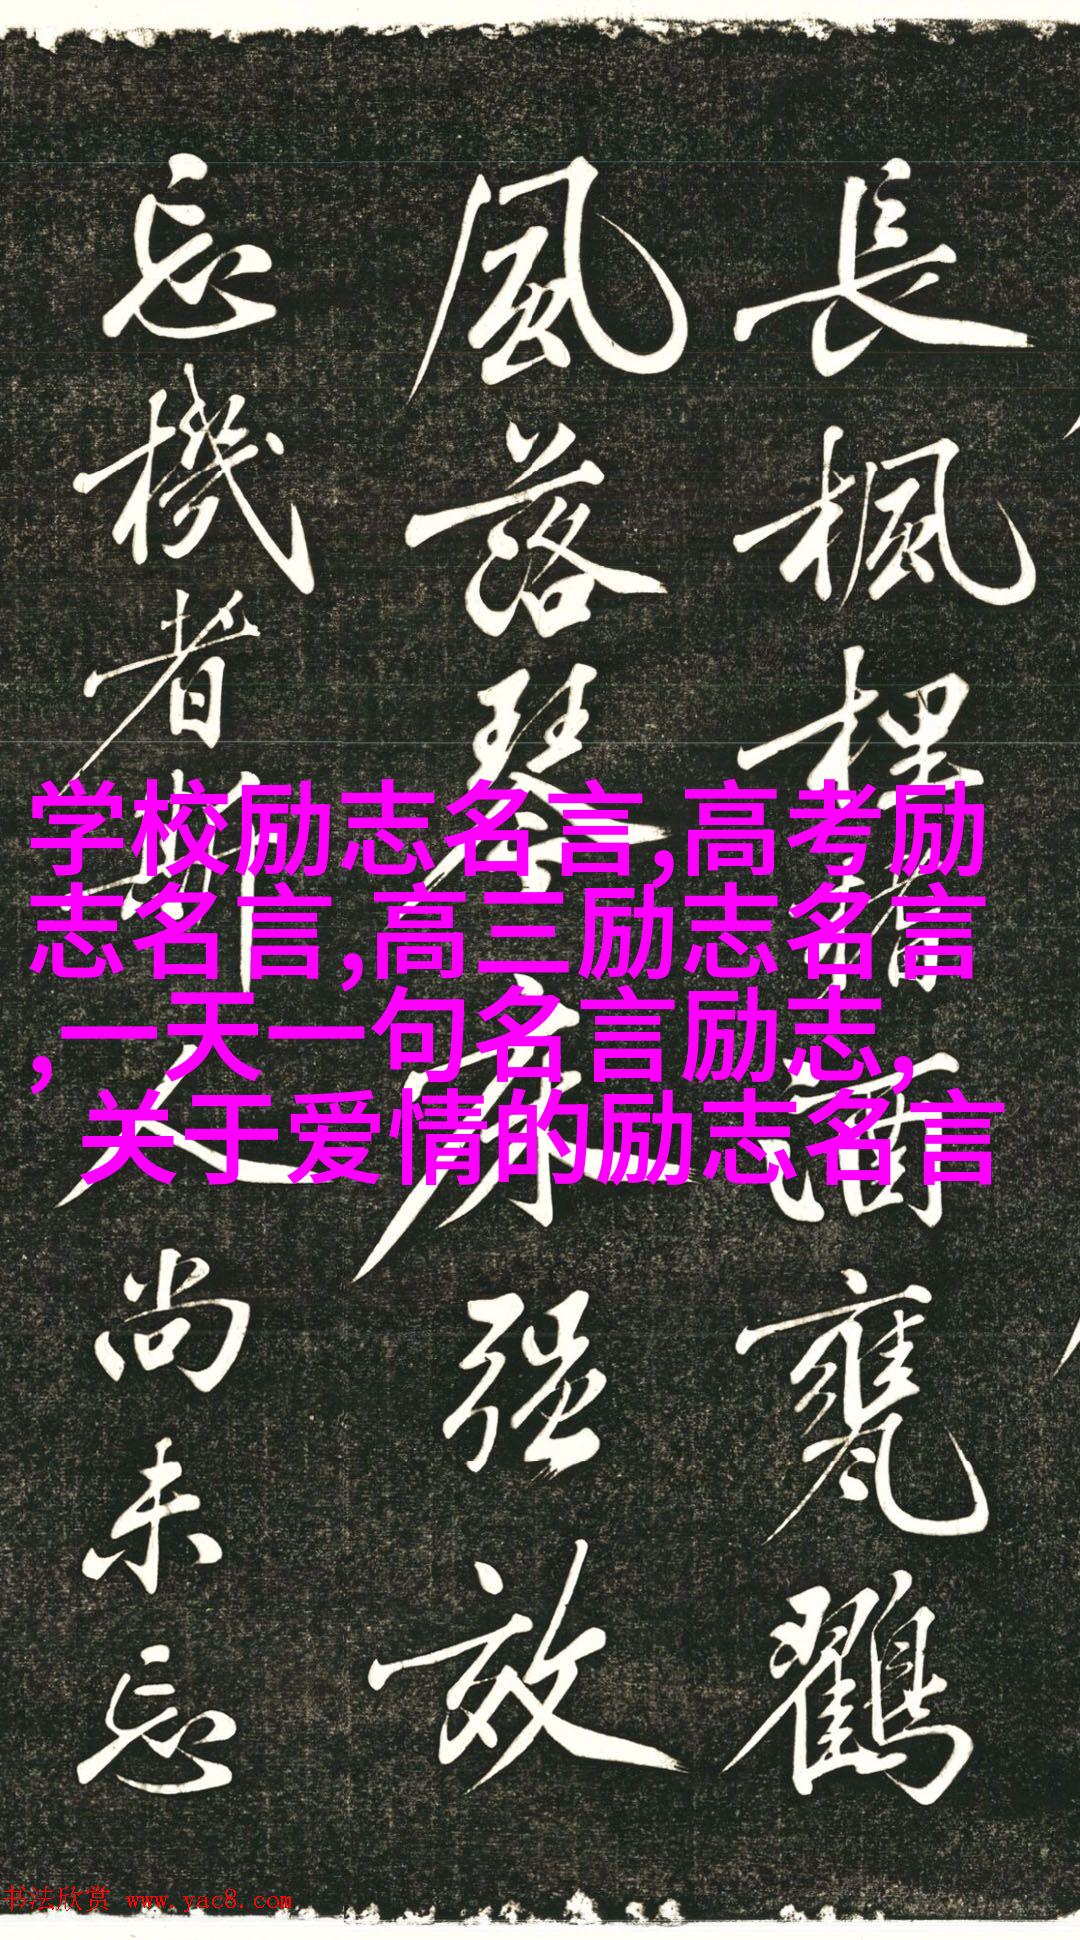 長楓桯𥡴酒甕鸛
風落琴床强放
忘機者斯人尚未忘
学校励志名言,高考励
志名言,高三励志名言
,一天一句名言励志,
关于爱情的励志名言
书法欣赏 www.yac8.com